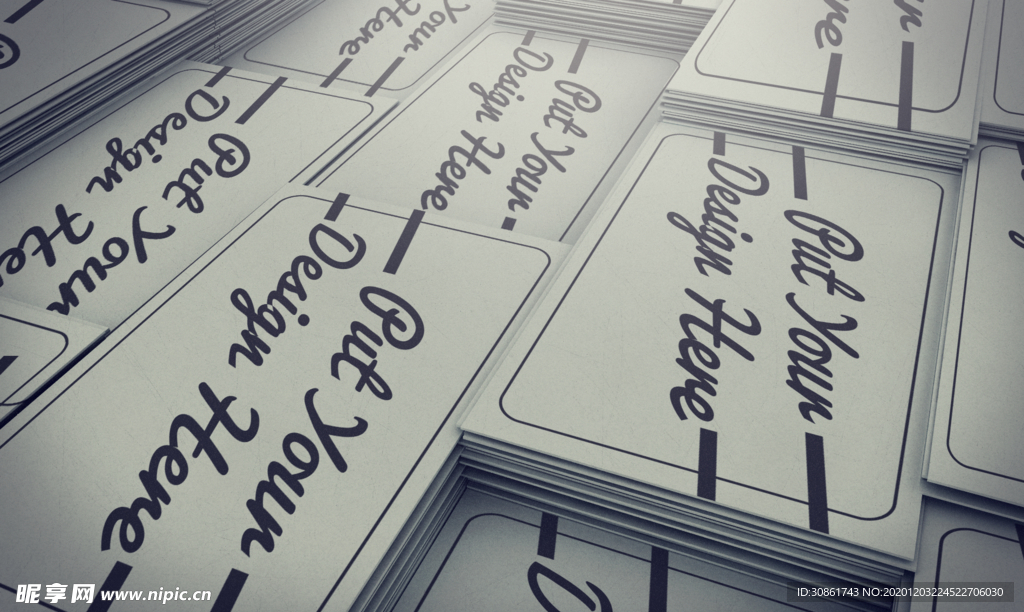 Your
Here
Put Your
Design Here
Put Your
Design Here
Put Your
Design Here
Put Your
Design Here
昵享网 www.nipic.cn
ID:30861743 NO:20201203224522706030